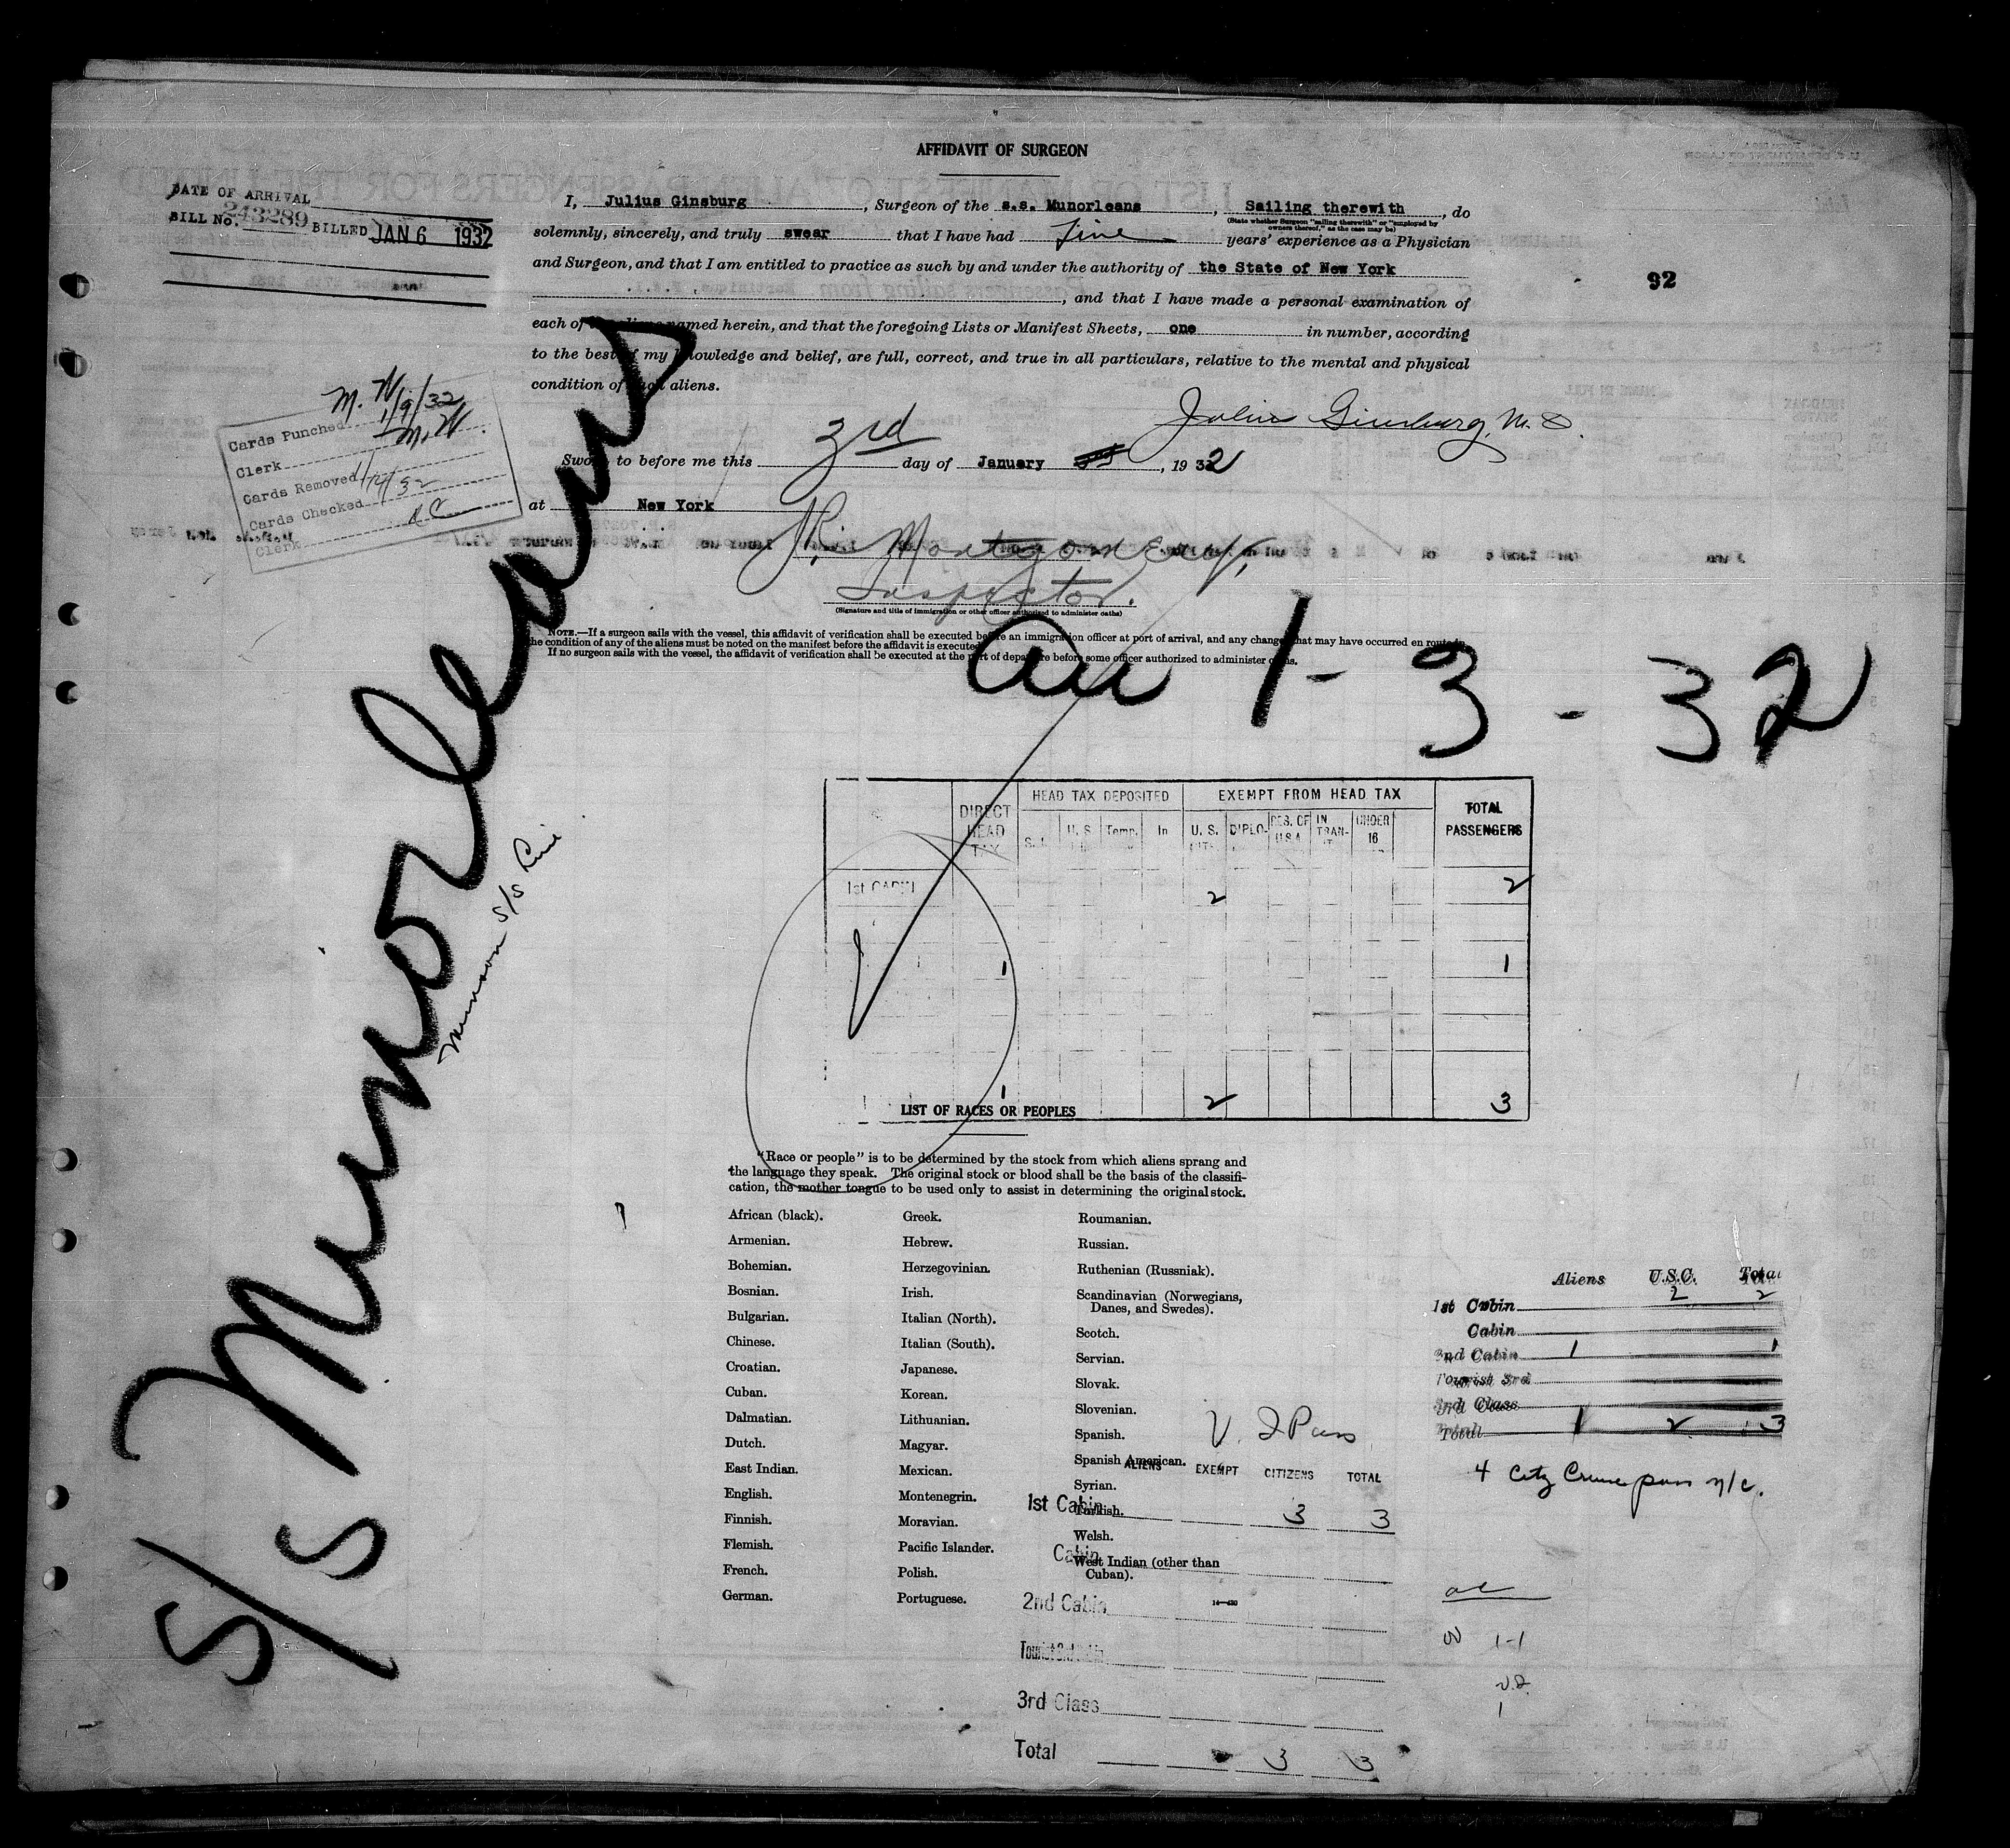 AFFIDAVIT OF SURGEON
DATE OF ARRIVAL
BILL No. 243289 BILLED JAN 6 1932
92
I, Julius Ginsburg, Surgeon of the s.s. Munorleans, Sailing therewith, do
(State whether Surgeon "sailing therewith" or "employed by
owners thereof," as the case may be)
solemnly, sincerely, and truly swear that I have had five years' experience as a Physician
and Surgeon, and that I am entitled to practice as such by and under the authority of the State of New York
, and that I have made a personal examination of
each of named herein, and that the foregoing Lists or Manifest Sheets, one in number, according
to the best of my knowledge and belief, are full, correct, and true in all particulars, relative to the mental and physical
condition of such aliens.
Julius Ginsburg, M.D.
Sworn to before me this 3rd day of January, 1932
at New York
Montgomery,
Inspector.
(Signature and title of immigration or other officer authorized to administer oaths)
NOTE.—If a surgeon sails with the vessel, this affidavit of verification shall be executed before an immigration officer at port of arrival, and any change that may have occurred en route in
the condition of any of the aliens must be noted on the manifest before the affidavit is executed.
If no surgeon sails with the vessel, the affidavit of verification shall be executed at the port of departure before some officer authorized to administer oaths.
M. W.
Cards Punched 1/9/32
Clerk M. W.
Cards Removed 1/14/32
Cards Checked
Clerk
S/S Munorleans
Munson S/S Line
1-3-32
DIRECT HEAD TAX
HEAD TAX DEPOSITED
EXEMPT FROM HEAD TAX
TOTAL PASSENGERS
U. S. Temp. In U. S. DIPLO- RES. OF U.S.A IN TRAN- UNDER 16
1st CABIN 2 2
1 1
1 2 3
LIST OF RACES OR PEOPLES
"Race or people" is to be determined by the stock from which aliens sprang and
the language they speak. The original stock or blood shall be the basis of the classifi-
cation, the mother tongue to be used only to assist in determining the original stock.
African (black).
Armenian.
Bohemian.
Bosnian.
Bulgarian.
Chinese.
Croatian.
Cuban.
Dalmatian.
Dutch.
East Indian.
English.
Finnish.
Flemish.
French.
German.
Greek.
Hebrew.
Herzegovinian.
Irish.
Italian (North).
Italian (South).
Japanese.
Korean.
Lithuanian.
Magyar.
Mexican.
Montenegrin.
Moravian.
Pacific Islander.
Polish.
Portuguese.
Roumanian.
Russian.
Ruthenian (Russniak).
Scandinavian (Norwegians,
Danes, and Swedes).
Scotch.
Servian.
Slovak.
Slovenian.
Spanish.
Spanish American.
Syrian.
Turkish.
Welsh.
West Indian (other than
Cuban).
14—430
V. I Pass
ALIENS EXEMPT CITIZENS TOTAL
1st Cabin 3 3
Cabin
2nd Cabin
Tourist 3rd Cabin
3rd Class
Total 3 3
Aliens U.S.C. Total
1st Cabin 2 2
Cabin
2nd Cabin 1 1
Tourist 3rd
3rd Class
Total 1 2 3
4 City Cruise pass n/c.
1-1
1